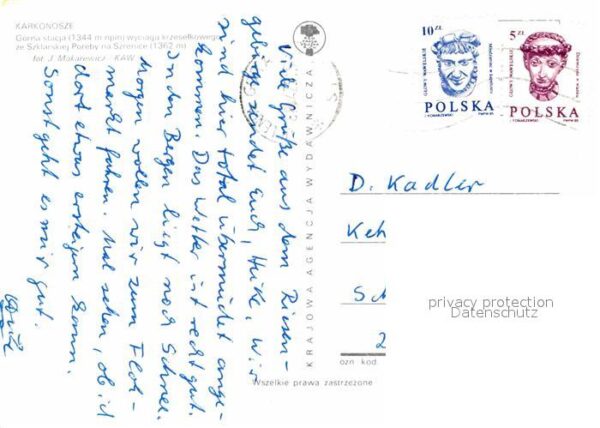 KARKONOSZE
Górna stacja (1344 m npm) wyciągu krzesełkowego
ze Szklarskiej Poręby na Szrenicę (1362 m)
fot. J. Makarewicz - KAW
Viele Grüße aus dem Riesen-
gebirge sendet Euch, Heike. Wir
sind hier total übermüdet ange-
kommen. Das Wetter ist recht gut.
In den Bergen liegt noch Schnee.
Morgen wollen wir zum Floh-
markt fahren. Mal sehen, ob ich
dort etwas ersteigern kann.
Sonst geht es mir gut.
KRAJOWA AGENCJA WYDAWNICZA
Wszelkie prawa zastrzeżone
10 ZŁ
GŁOWY WAWELSKIE
POLSKA
5 ZŁ
GŁOWY WAWELSKIE
POLSKA
D. Kadler
Keh
Sch
2
ozn kod
privacy protection
Datenschutz